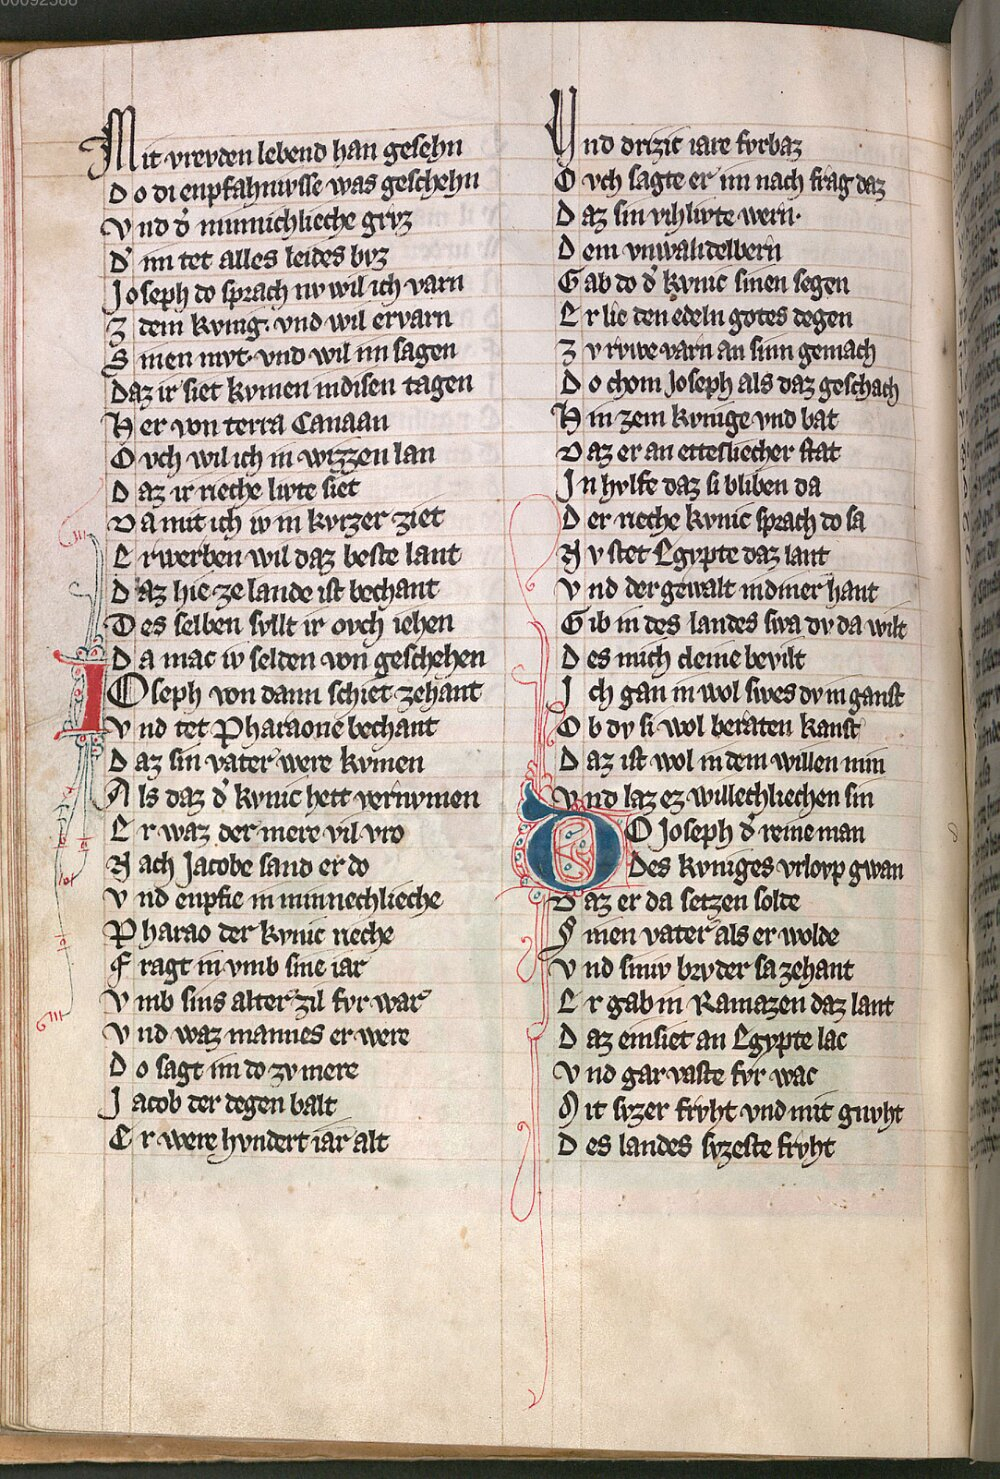 00092588
Mit vrevden lebend han gesehn
Do di enpfahnvsse was geschehn
Vnd d' minnichlieche grvz
D' im tet alles leides bvz
Joseph do sprach nv wil ich varn
Z dem kvnig. vnd wil ervarn
Sinen mvt. vnd wil im sagen
Daz ir siet kvmen in disen tagen
Her von terra Canaan
Ovch wil ich in wizzen lan
Daz ir rieche livte siet
Da mit ich iv in kvrzer ziet
Erwerben wil daz beste lant
Daz hie ze lande ist bechant
Des selben svllt ir ovch iehen
Da mac iv selden von geschehen
IOseph von dann schiet zehant
Vnd tet Pharaone bechant
Daz sin vater were kvmen
Als daz d' kvnic hett vernvmen
Er waz der mere vil vro
Nach Jacobe sand er do
Vnd enpfie in minnechlieche
Pharao der kvnic rieche
Fragt in vmb sine iar
Vmb sins alter zil fvr war
Vnd waz mannes er were
Do sagt im do zv mere
Jacob der degen balt
Er were hvndert iar alt
Vnd drizic iare fvrbaz
Ovch sagte er im nach frag daz
Daz sin vihlivte wern.
Dem vnwandelbern
Gab do d' kvnic sinen segen
Er lie den edeln gotes degen
Zv rvwe varn an sinn gemach
Do chom Joseph als daz geschach
Hin zem kvnige vnd bat
Daz er an etteslieecher stat
In hvlfe daz si bliben da
Der rieche kvnic sprach do sa
Nv stet Egypte daz lant
Vnd der gewalt in diner hant
Gib in des landes swa dv da wilt
Des mich cleine bevilt
Ich gan in wol swes dv in ganst
Ob dv si wol beraten kanst
Daz ist wol in dem willen min
Vnd laz ez willechliechen sin
DO Joseph d' reine man
Des kvniges vrlovp gwan
Daz er da setzen solte
Sinen vater als er wolde
Vnd siniv brvder sa zehant
Er gab in Ramazen daz lant
Daz einsiet an Egypte lac
Vnd gar vaste fvr wac
Mit svzer frvht vnd mit gnvht
Des landes svzeste frvht